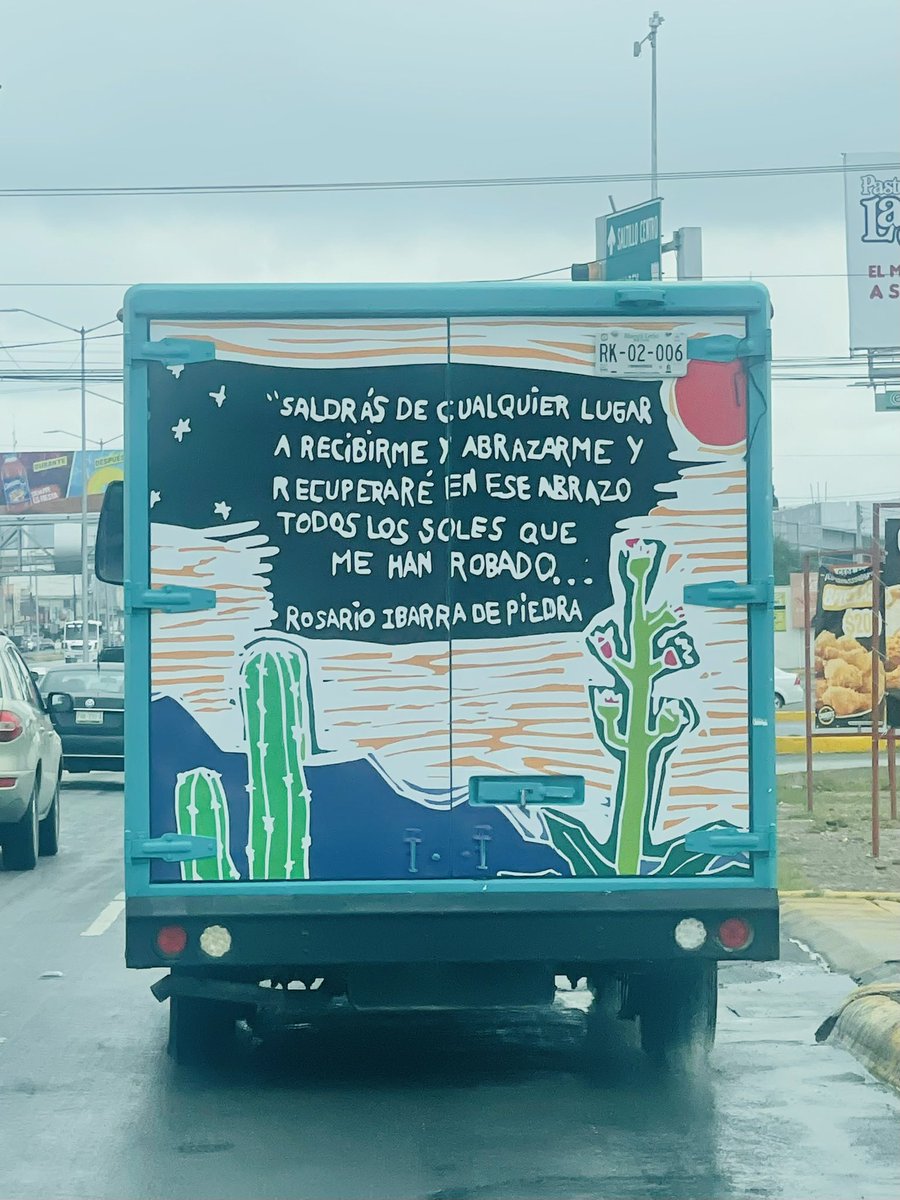 SALTILLO CENTRO
RK-02-006
"SALDRÁS DE CUALQUIER LUGAR
A RECIBIRME Y ABRAZARME Y
RECUPERARÉ EN ESE ABRAZO
TODOS LOS SOLES QUE
ME HAN ROBADO...
ROSARIO IBARRA DE PIEDRA
EL M
A S
DURANTE
DESPUÉ